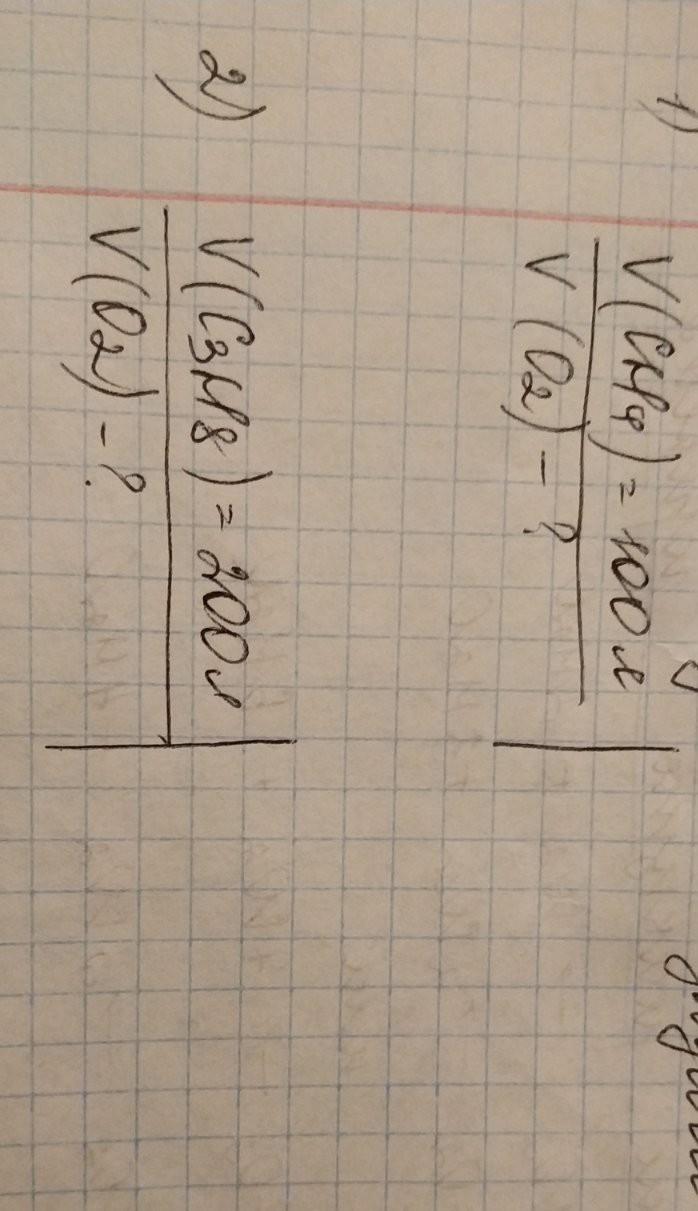 1)
V(CH₄) = 100л
V(O₂) - ?
2)
V(C₃H₈) = 200л
V(O₂) - ?